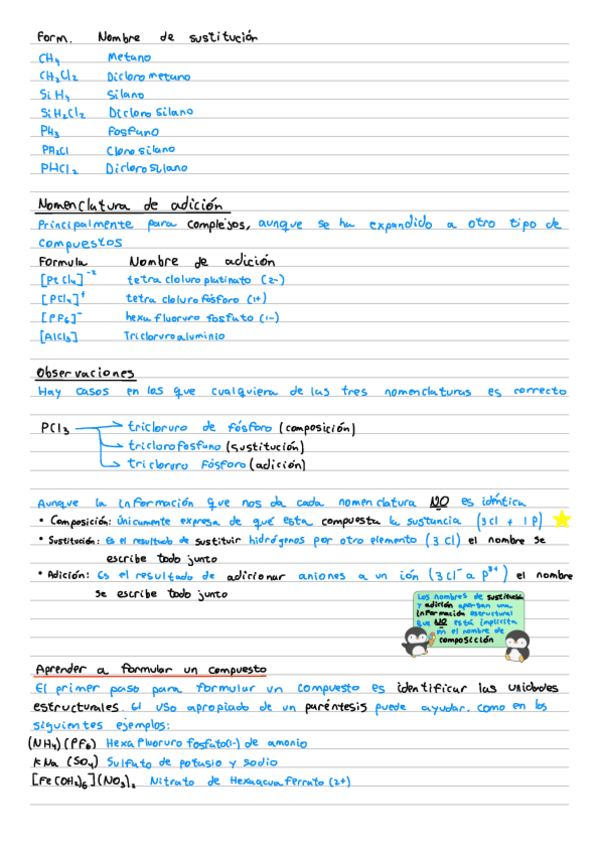 Form. Nombre de sustitución
CH4 Metano
CH2Cl2 Diclorometano
SiH4 Silano
SiH2Cl2 Dicloro silano
PH3 Fosfano
PH2Cl Cloro silano
PHCl2 Dicloro silano
Nomenclatura de adición
Principalmente para complejos, aunque se ha expandido a otro tipo de
compuestos
Formula Nombre de adición
[PtCl4]-2 tetra cloluro platinato (2-)
[PCl4]+ tetra cloluro fósforo (1+)
[PF6]- hexa fluoruro fosfato (1-)
[AlCl3] Tricloruro aluminio
Observaciones
Hay casos en los que cualquiera de las tres nomenclaturas es correcto
PCl3 tricloruro de fósforo (composición)
triclorofosfano (sustitución)
tricloruro fósforo (adición)
Aunque la información que nos da cada nomenclatura NO es idéntica
• Composición: Únicamente expresa de qué esta compuesta la sustancia (3Cl + 1P)
• Sustitución: Es el resultado de sustituir hidrógenos por otro elemento (3 Cl) el nombre se
escribe todo junto
• Adición: Es el resultado de adicionar aniones a un ión (3Cl- a P3+) el nombre
se escribe todo junto
Los nombres de sustitución
y adición aportan una
información estructural
que NO está implícita
en el nombre de
composición
Aprender a formular un compuesto
El primer paso para formular un compuesto es identificar las unidades
estructurales. El uso apropiado de un paréntesis puede ayudar. Como en los
siguientes ejemplos:
(NH4)(PF6) Hexa fluoruro fosfato(1-) de amonio
KNa (SO4) Sulfato de potasio y sodio
[Fe(OH2)6](NO3)2 Nitrato de Hexaacua ferrato (2+)